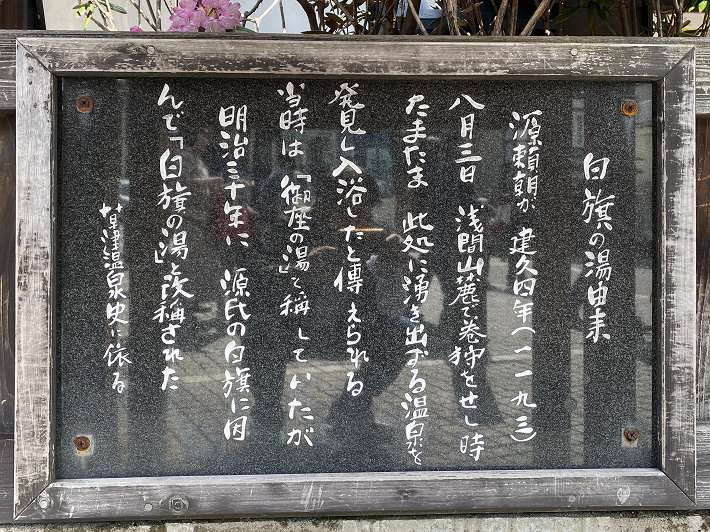 白旗の湯由来
源頼朝が 建久四年(一一九三)
八月三日 浅間山麓で巻狩をせし時
たまたま 此処に湧き出ずる温泉を
発見し入浴したと傳えられる
当時は 「御座の湯」と称していたが
明治三十年に 源氏の白旗に因
んで「白旗の湯」と改称された
草津温泉史に依る